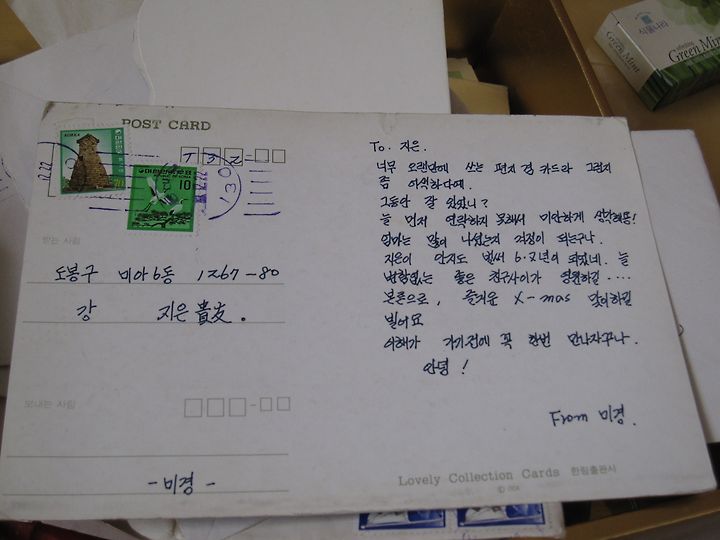 POST CARD
KOREA
대한민국우표
70
대한민국우표
REPUBLIC OF KOREA
10
132-
12.22
130
받는 사람
도봉구 미아6동 1267-80
강 지은 貴友.
보내는 사람
-미경-
To. 지은.
너무 오랜만에 쓰는 편지 겸 카드라 그런지
좀 어색하다얘.
그동안 잘 있었니?
늘 먼저 연락하지 못해서 미안하게 생각해용!
엄마는 많이 나셨는지 걱정이 되는구나.
지은이 안지도 벌써 6·7년이 되었네. 늘
변함없는 좋은 친구사이가 영원하길····
본론으로, 즐거운 X-mas 맞이하길
빌어요
이해가 가기전에 꼭 한번 만나자꾸나.
안녕!
From 미경.
Lovely Collection Cards 한림출판사
식물나라
Green Mint